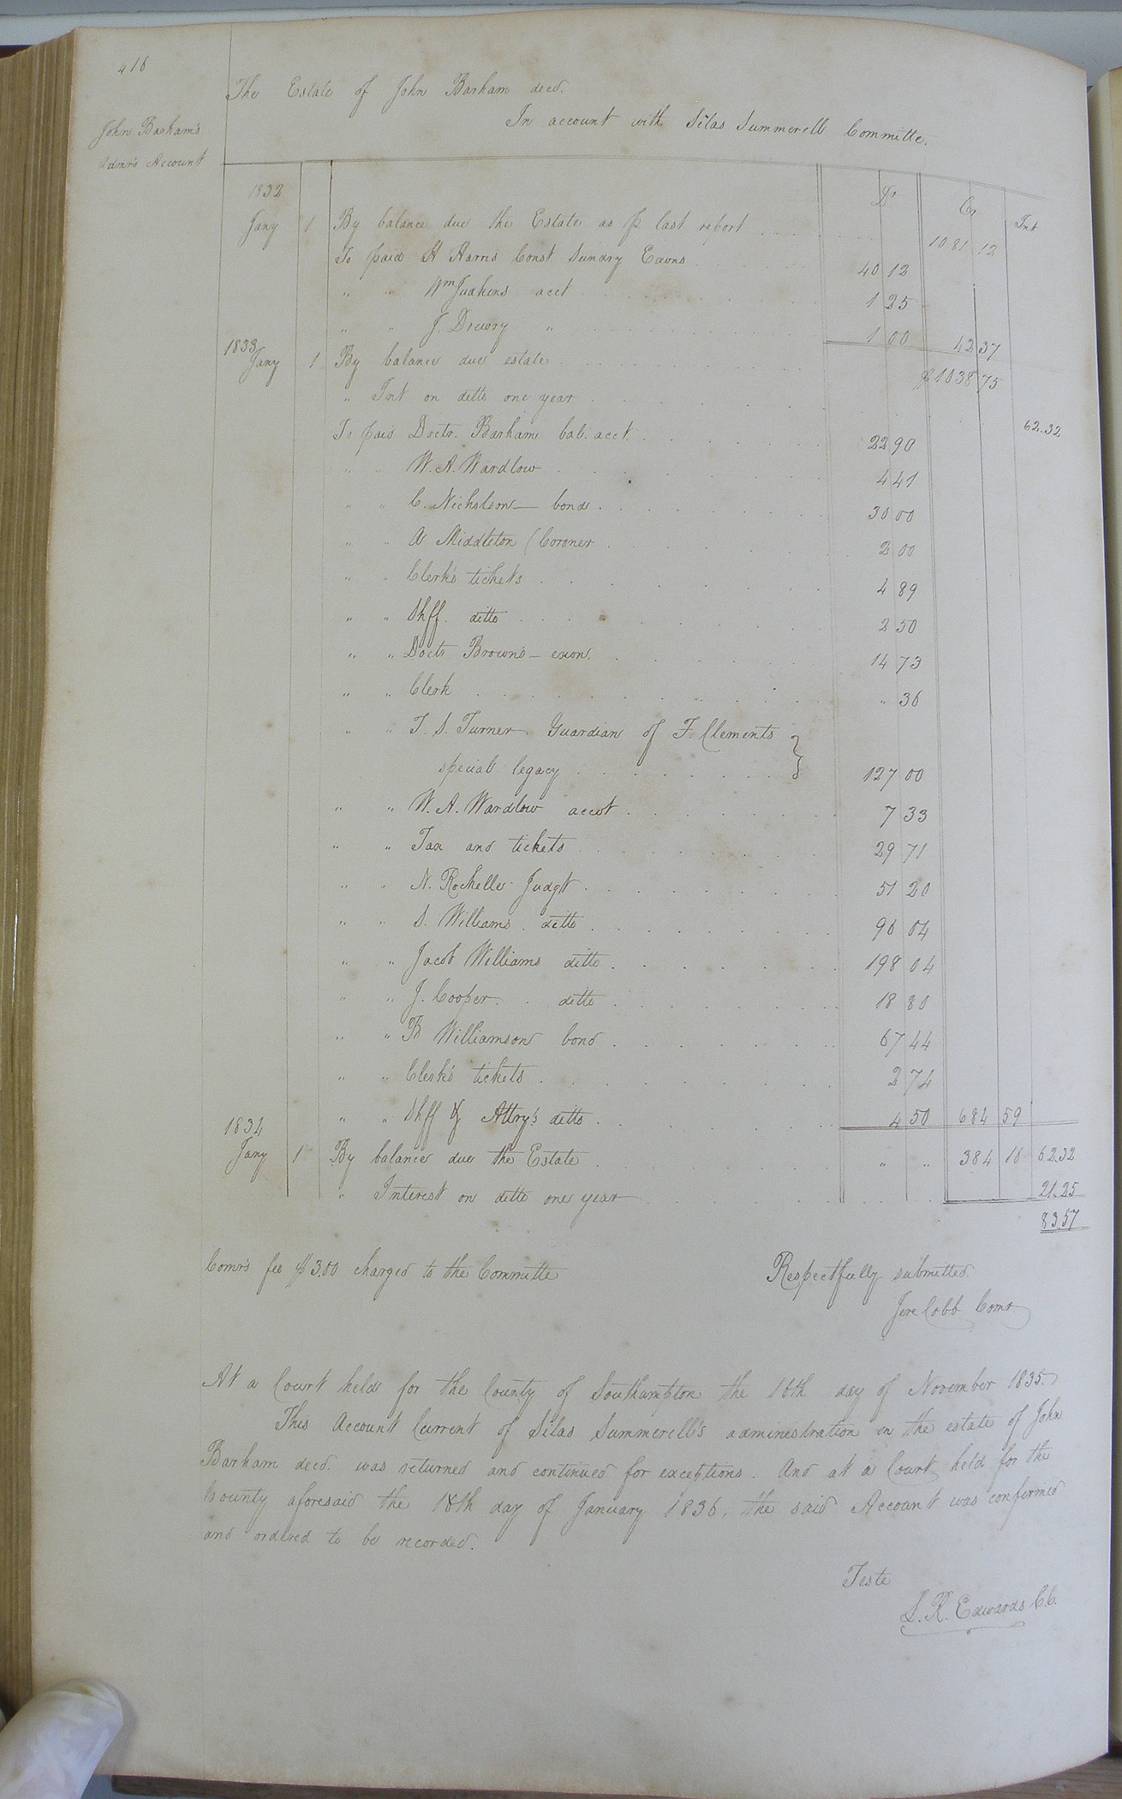 416
The Estate of John Barham decd.
In account with Silas Summerell Committe.
John Barham's
Admr's Account
Dr Cr Int
1832
Jany 1 By balance due the Estate as p last report 1081 12
To paid H Harris Const Sundry Exons 40 12
" " Wm Judkins acct 1 25
" " J. Drewry " 1 00 42 37
1833
Jany 1 By balance due estate $1038 75
" Int on ditto one year 62.32
To paid Doctr. Barham bal. acct. 22 90
" " W. A. Wardlow 4 41
" " C. Nicholson — bond 30 00
" " A Middleton (Coroner 2 00
" " Clerk's tickets 4 89
" " Shff. ditto 2 50
" " Doctr Brown's — exon. 14 73
" " Clerk " 36
" " T. S. Turner Guardian of F Clements }
special legacy 127 00
" " W. A. Wardlow accot 7 33
" " Tax and tickets 29 71
" " N. Rochelle Judgt 51 20
" " S. Williams ditto 96 04
" " Jacob Williams ditto 198 04
" " J. Cooper ditto 18 80
" " B Williamson bond 67 44
" " Clerk's tickets 2 74
" " Shff & Attry's ditto 4 50 684 59
1834
Jany 1 By balance due the Estate " " 384 16 62.32
" Interest on ditto one year 21.25
83.57
Comr's fee $3.00 charged to the Committe
Respectfully submitted.
Jere Cobb Comr
At a Court held for the County of Southampton the 16th day of November 1835.
This Account Current of Silas Summerell's administration on the estate of John
Barham decd. was returned and continued for exceptions. And at a Court held for the
County aforesaid the 18th day of January 1836, the said Account was confirmed
and ordered to be recorded.
Teste
L. R. Edwards C.C.